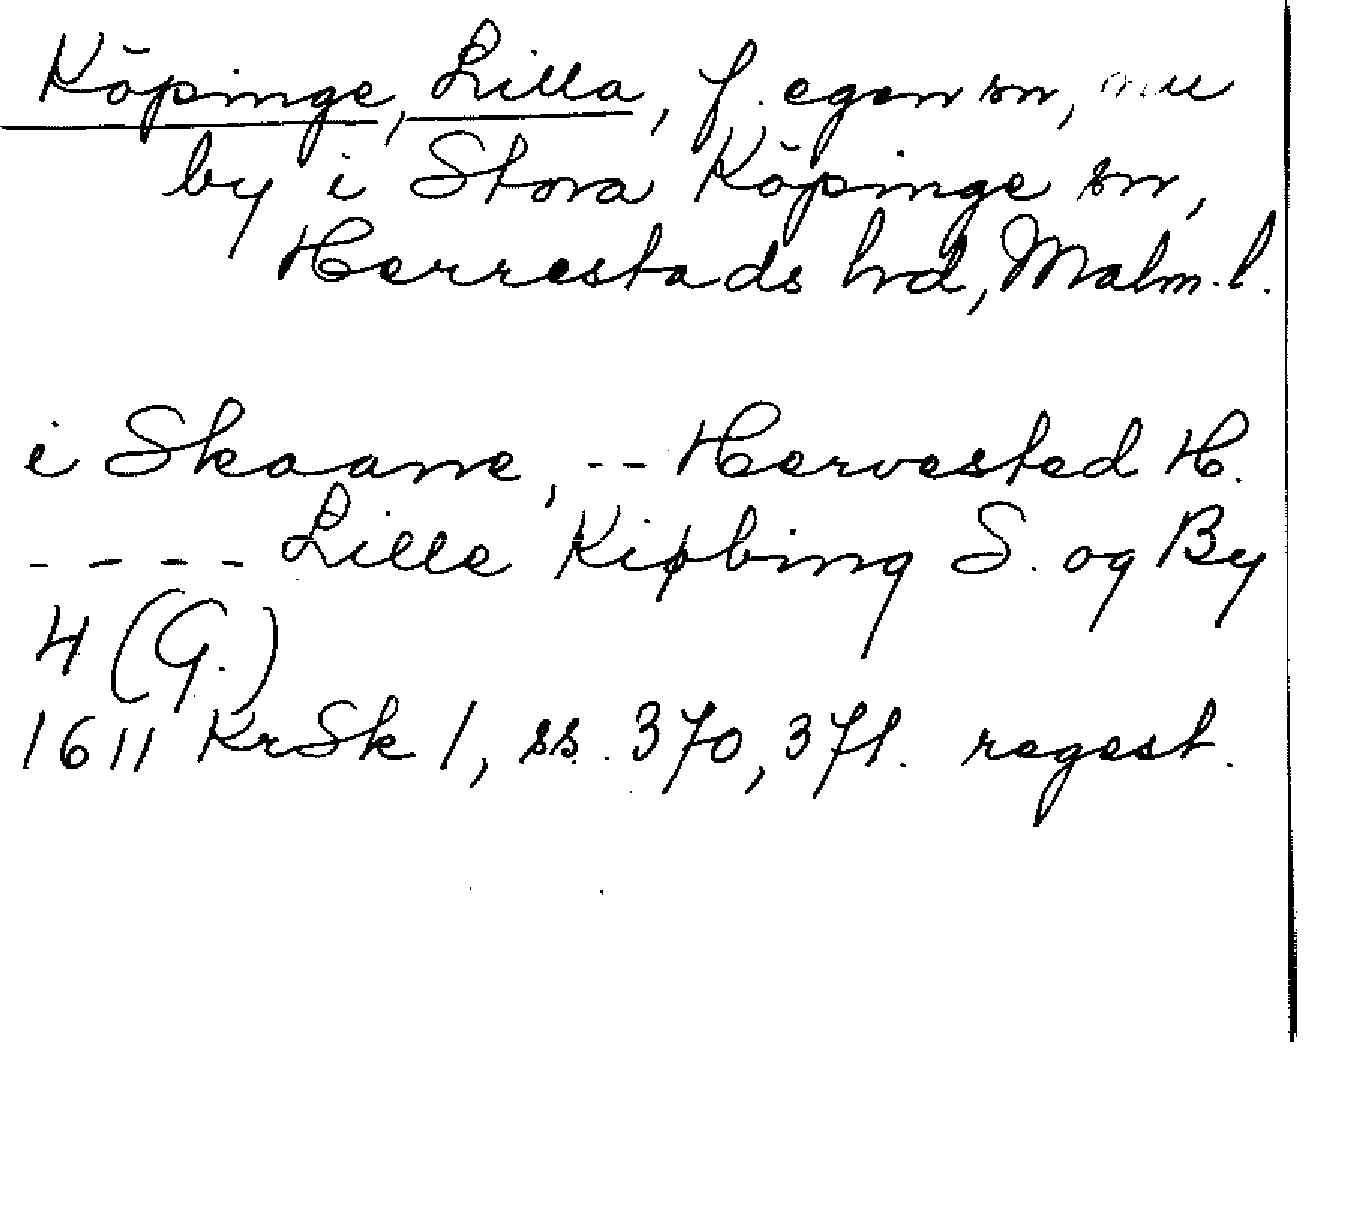 Köpinge, Lilla, f. egen sn, nu
by i Stora Köpinge sn,
Herrestads hd, Malm. l.
i Skaane, -- Hervested H.
---- Lille Kiøbing S. og By
4 (G.)
1611 KrSk 1, ss. 370, 371. regest.